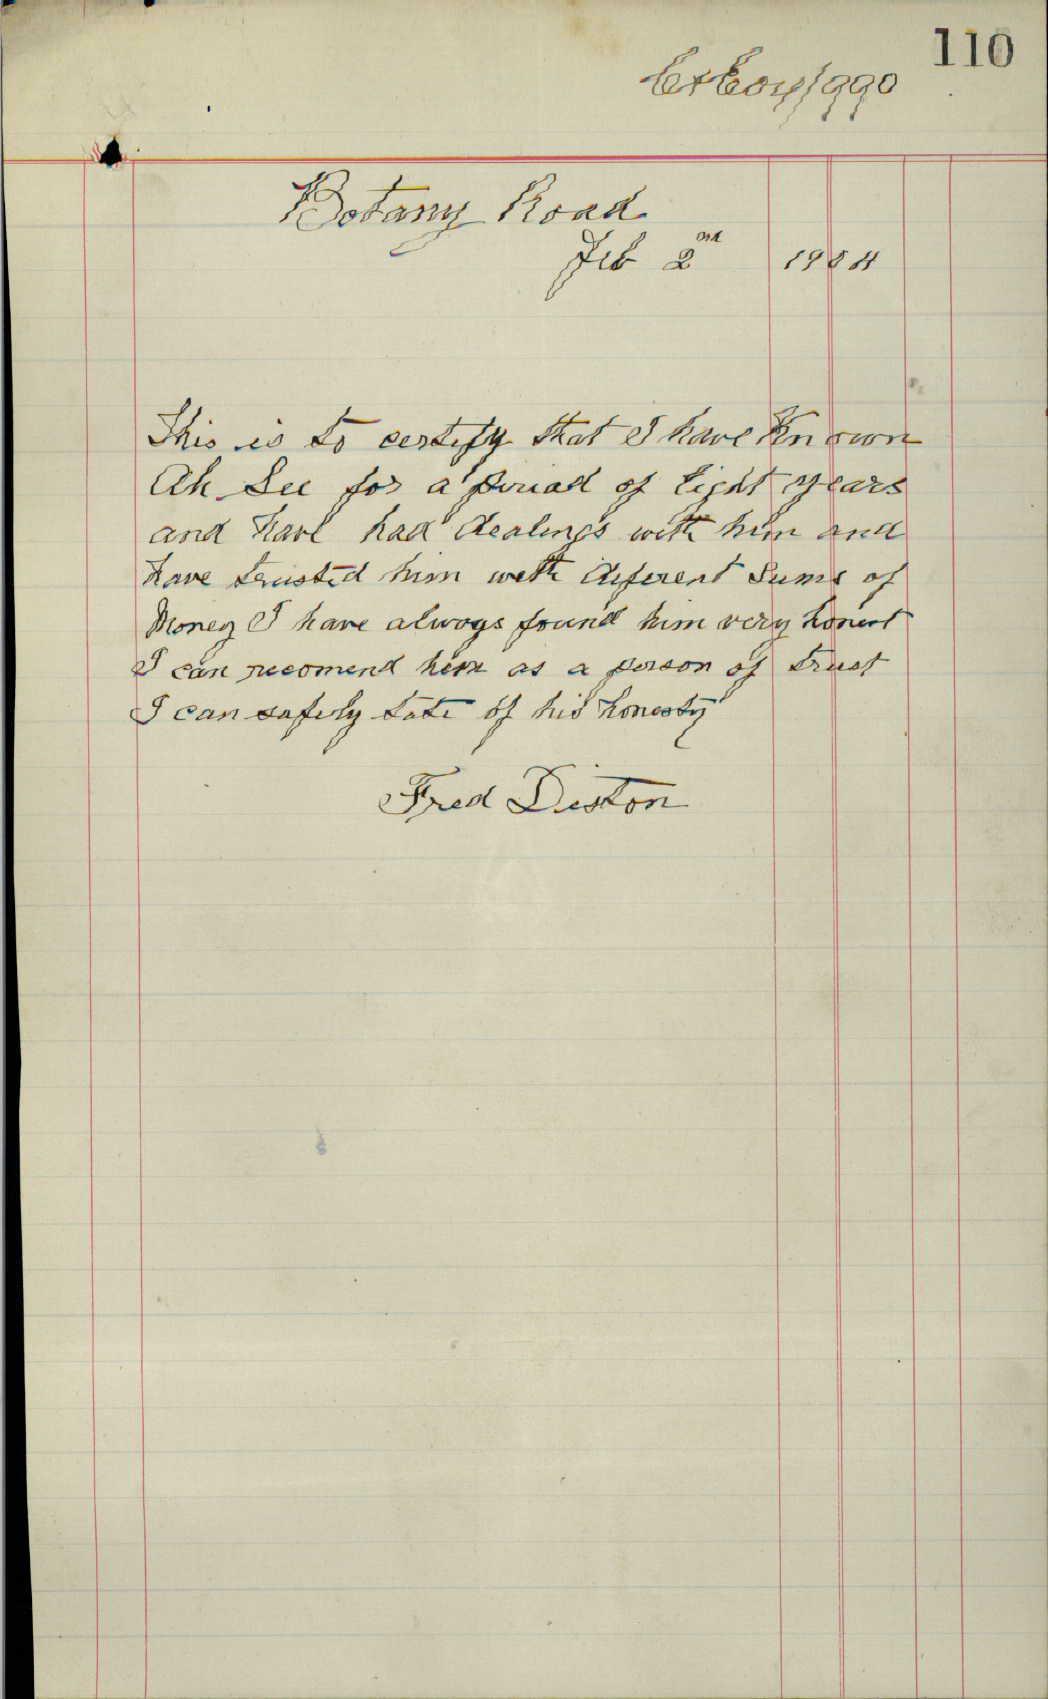 110
Botany Road
Feb 2nd 1904
This is to certify that I have Known
Ah Lee for a peruad of Eight years
and have had dealings with him and
have trusted him with diferent Sums of
Money I have always found him very honest
I can recomend him as a person of trust
I can safely tate of his honesty
Fred Diston